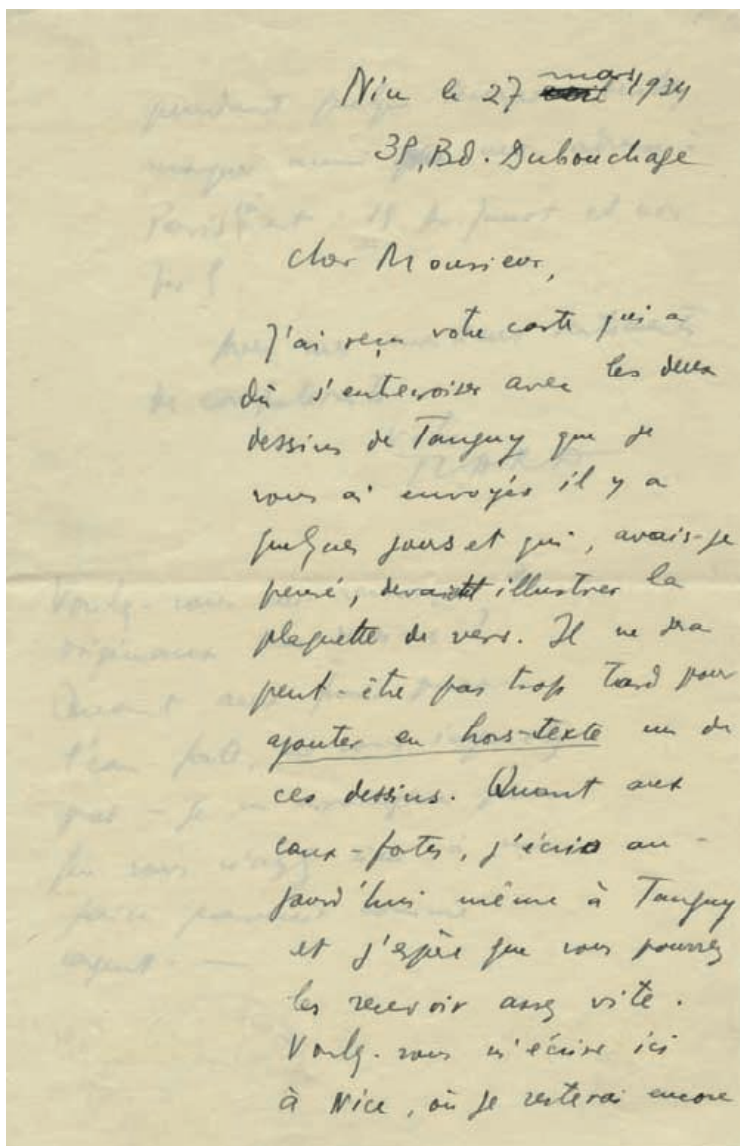 Nice le 27 mars 1934
38, Bd. Dubouchage
Cher Monsieur,
J'ai reçu votre carte qui a
dû s'entrecroiser avec les deux
dessins de Tanguy que je
vous ai envoyés il y a
quelques jours et qui, avais-je
pensé, devaient illustrer la
plaquette de vers. Il ne sera
peut-être pas trop tard pour
ajouter en hors-texte un de
ces dessins. Quant aux
eaux-fortes, j'écris au-
jourd'hui même à Tanguy
et j'espère que vous pourrez
les recevoir assez vite.
Voulez-vous m'écrire ici
à Nice, où je resterai encore